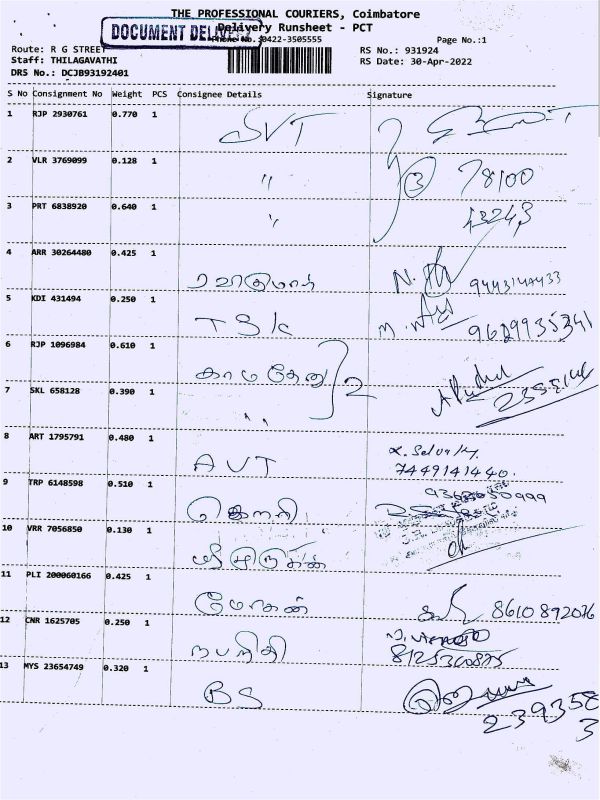 THE PROFESSIONAL COURIERS, Coimbatore
Delivery Runsheet - PCT
DOCUMENT DELIVERY
Phone No.:0422-3505555
Page No.:1
Route: R G STREET
RS No.: 931924
Staff: THILAGAVATHI
RS Date: 30-Apr-2022
DRS No.: DCJB93192401
S No Consignment No Weight PCS Consignee Details Signature
1 RJP 2930761 0.770 1 SVT
2 VLR 3769099 0.128 1 〃 3 78100
3 PRT 6838920 0.640 1 〃 43243
4 ARR 30264480 0.425 1 ரவிகுமார் N.
5 KDI 431494 0.250 1 TSK 9629935341
6 RJP 1096984 0.610 1 காமதேனு 2
7 SKL 658128 0.390 1 〃
8 ART 1795791 0.480 1 AVT
7449141440.
9 TRP 6148598 0.510 1 கௌரி
10 VRR 7056850 0.130 1 ஸ்ரீமுருகன்
11 PLI 200060166 0.425 1 மோகன் 8610892076
12 CNR 1625705 0.250 1
13 MYS 23654749 0.320 1 BS
239358
3